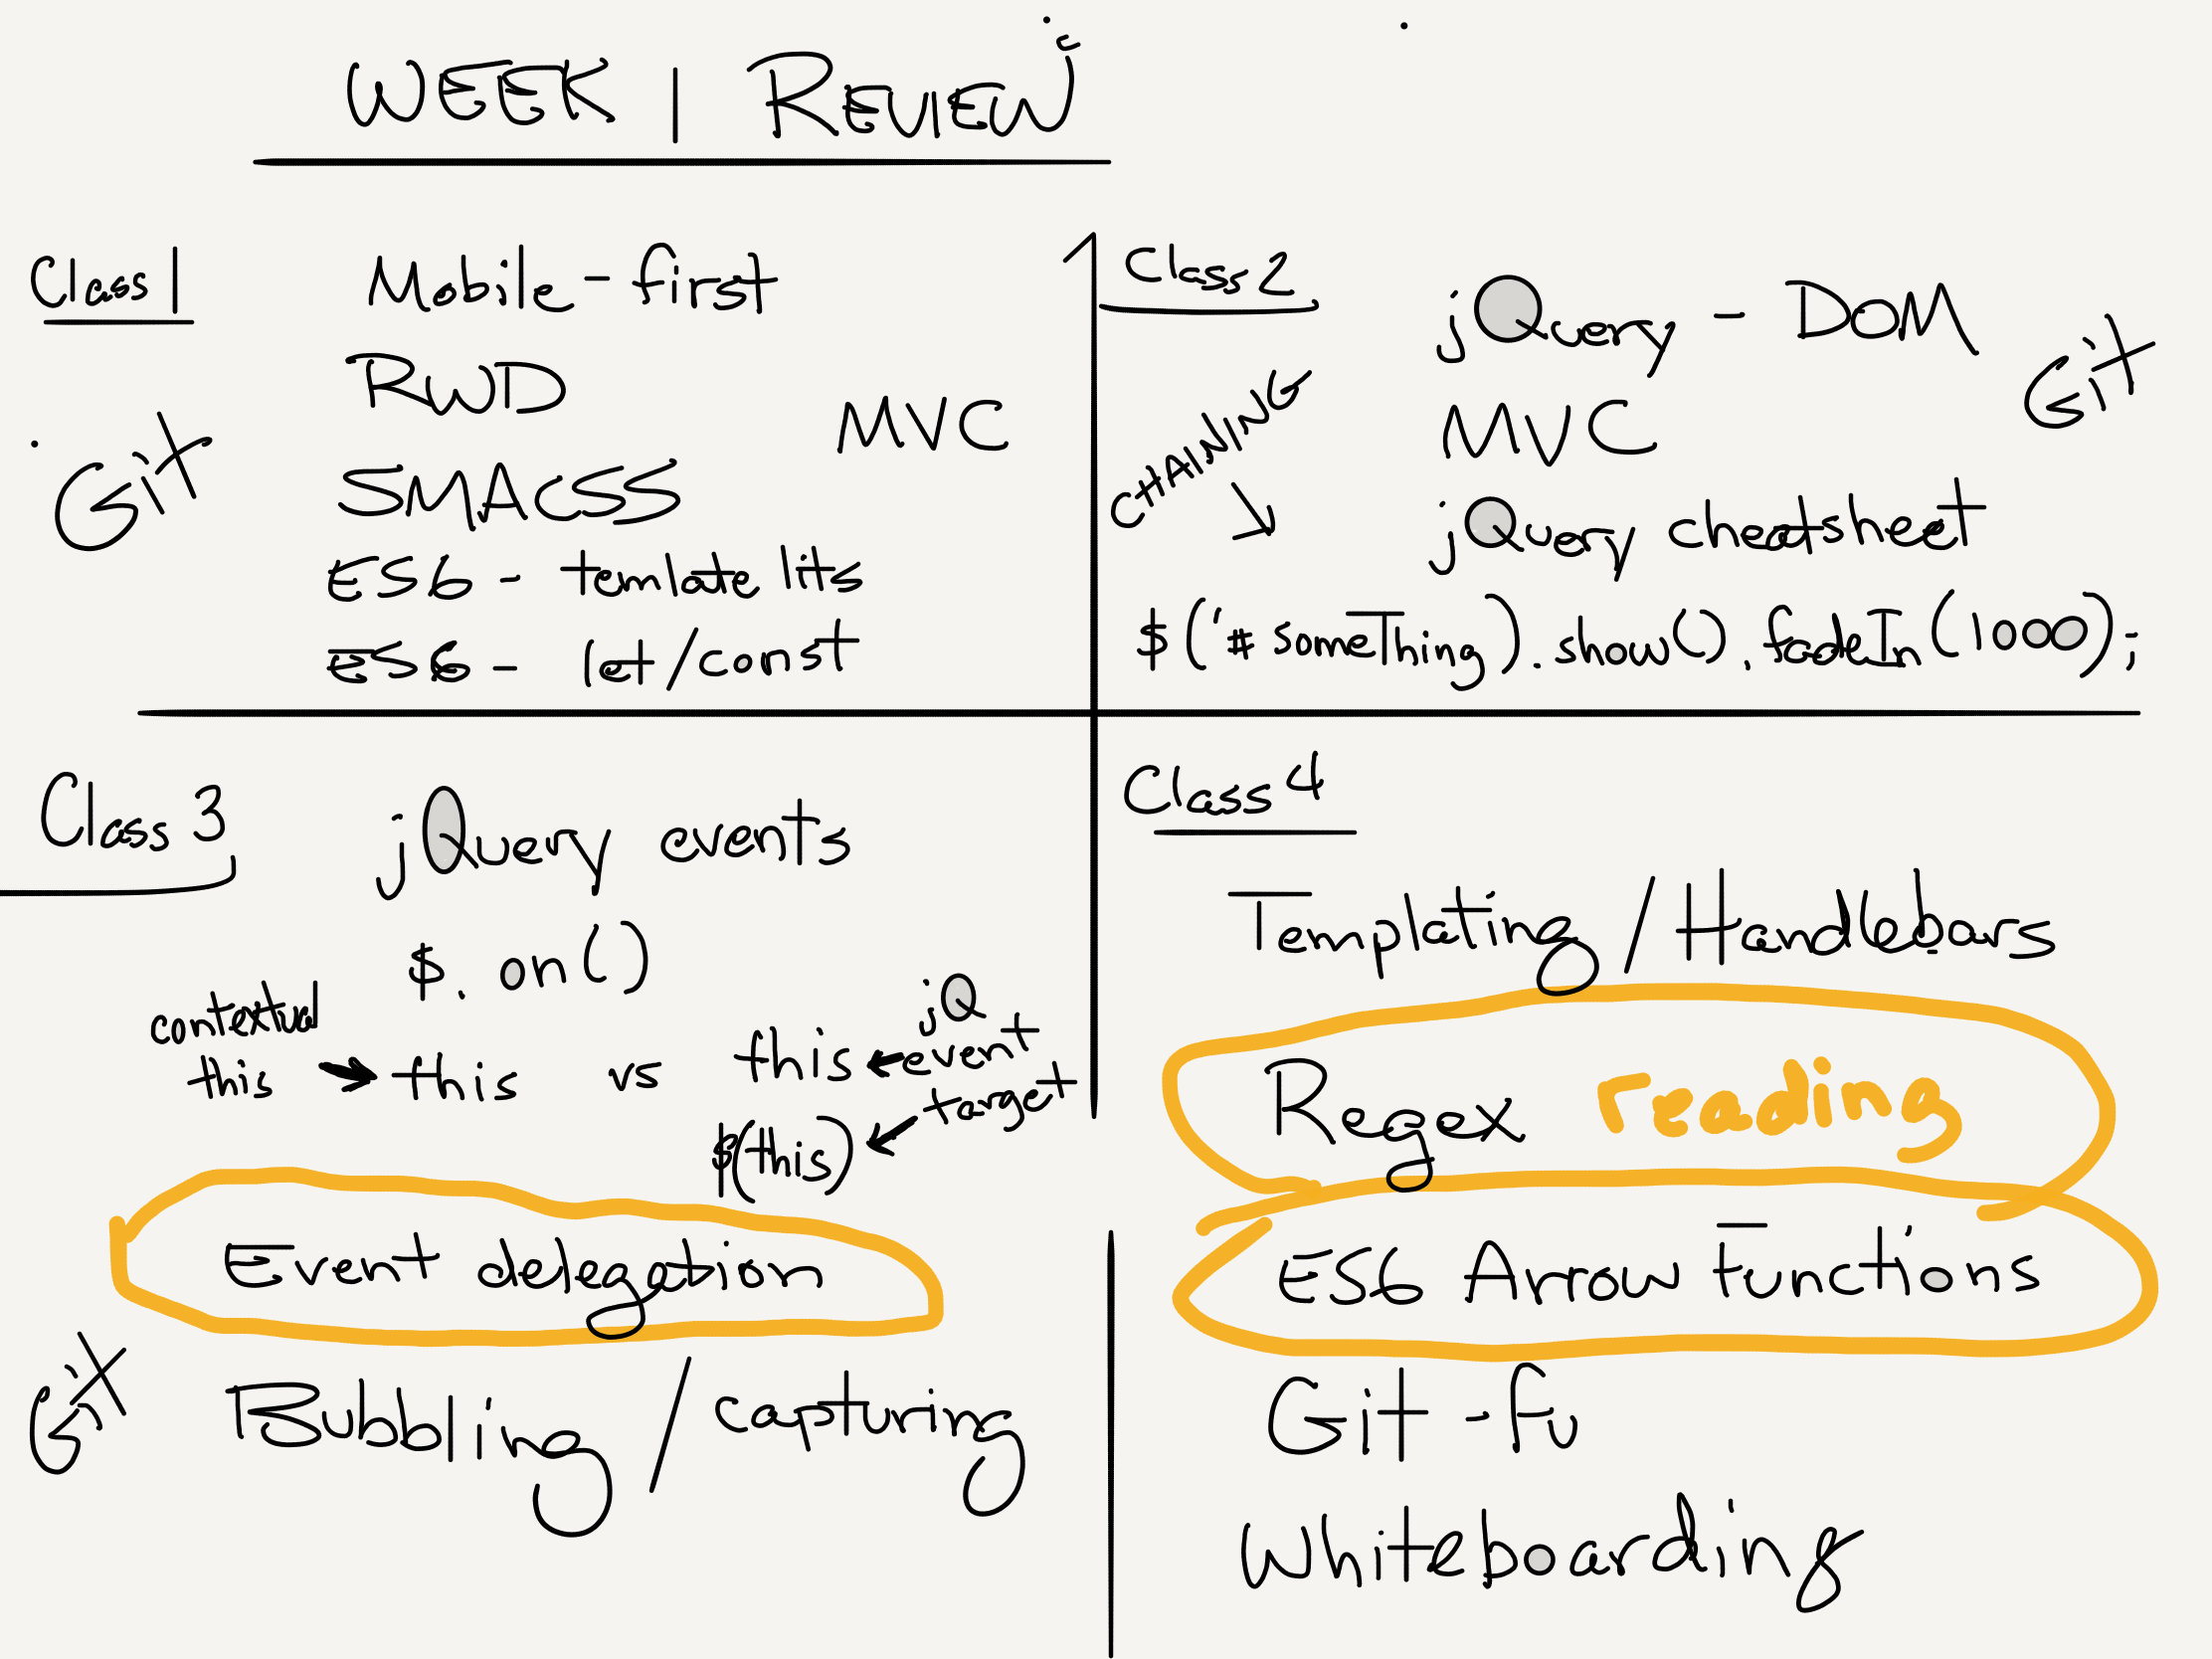 WEEK 1 REVIEW
Class 1
Mobile-first
RWD
MVC
Git
SMACSS
ES6 - temlate lits
ES6 - let/const
Class 2
jQuery - DOM
Git
MVC
CHAINING
jQuery cheatsheet
$('#someThing).show().fadeIn(1000);
Class 3
jQuery events
$.on()
contextual
this
this vs this
jQ
event
target
$(this)
Event delegation
Git
Bubbling / capturing
Class 4
Templating / Handlebars
Regex reading
ES6 Arrow Functions
Git-fu
Whiteboarding